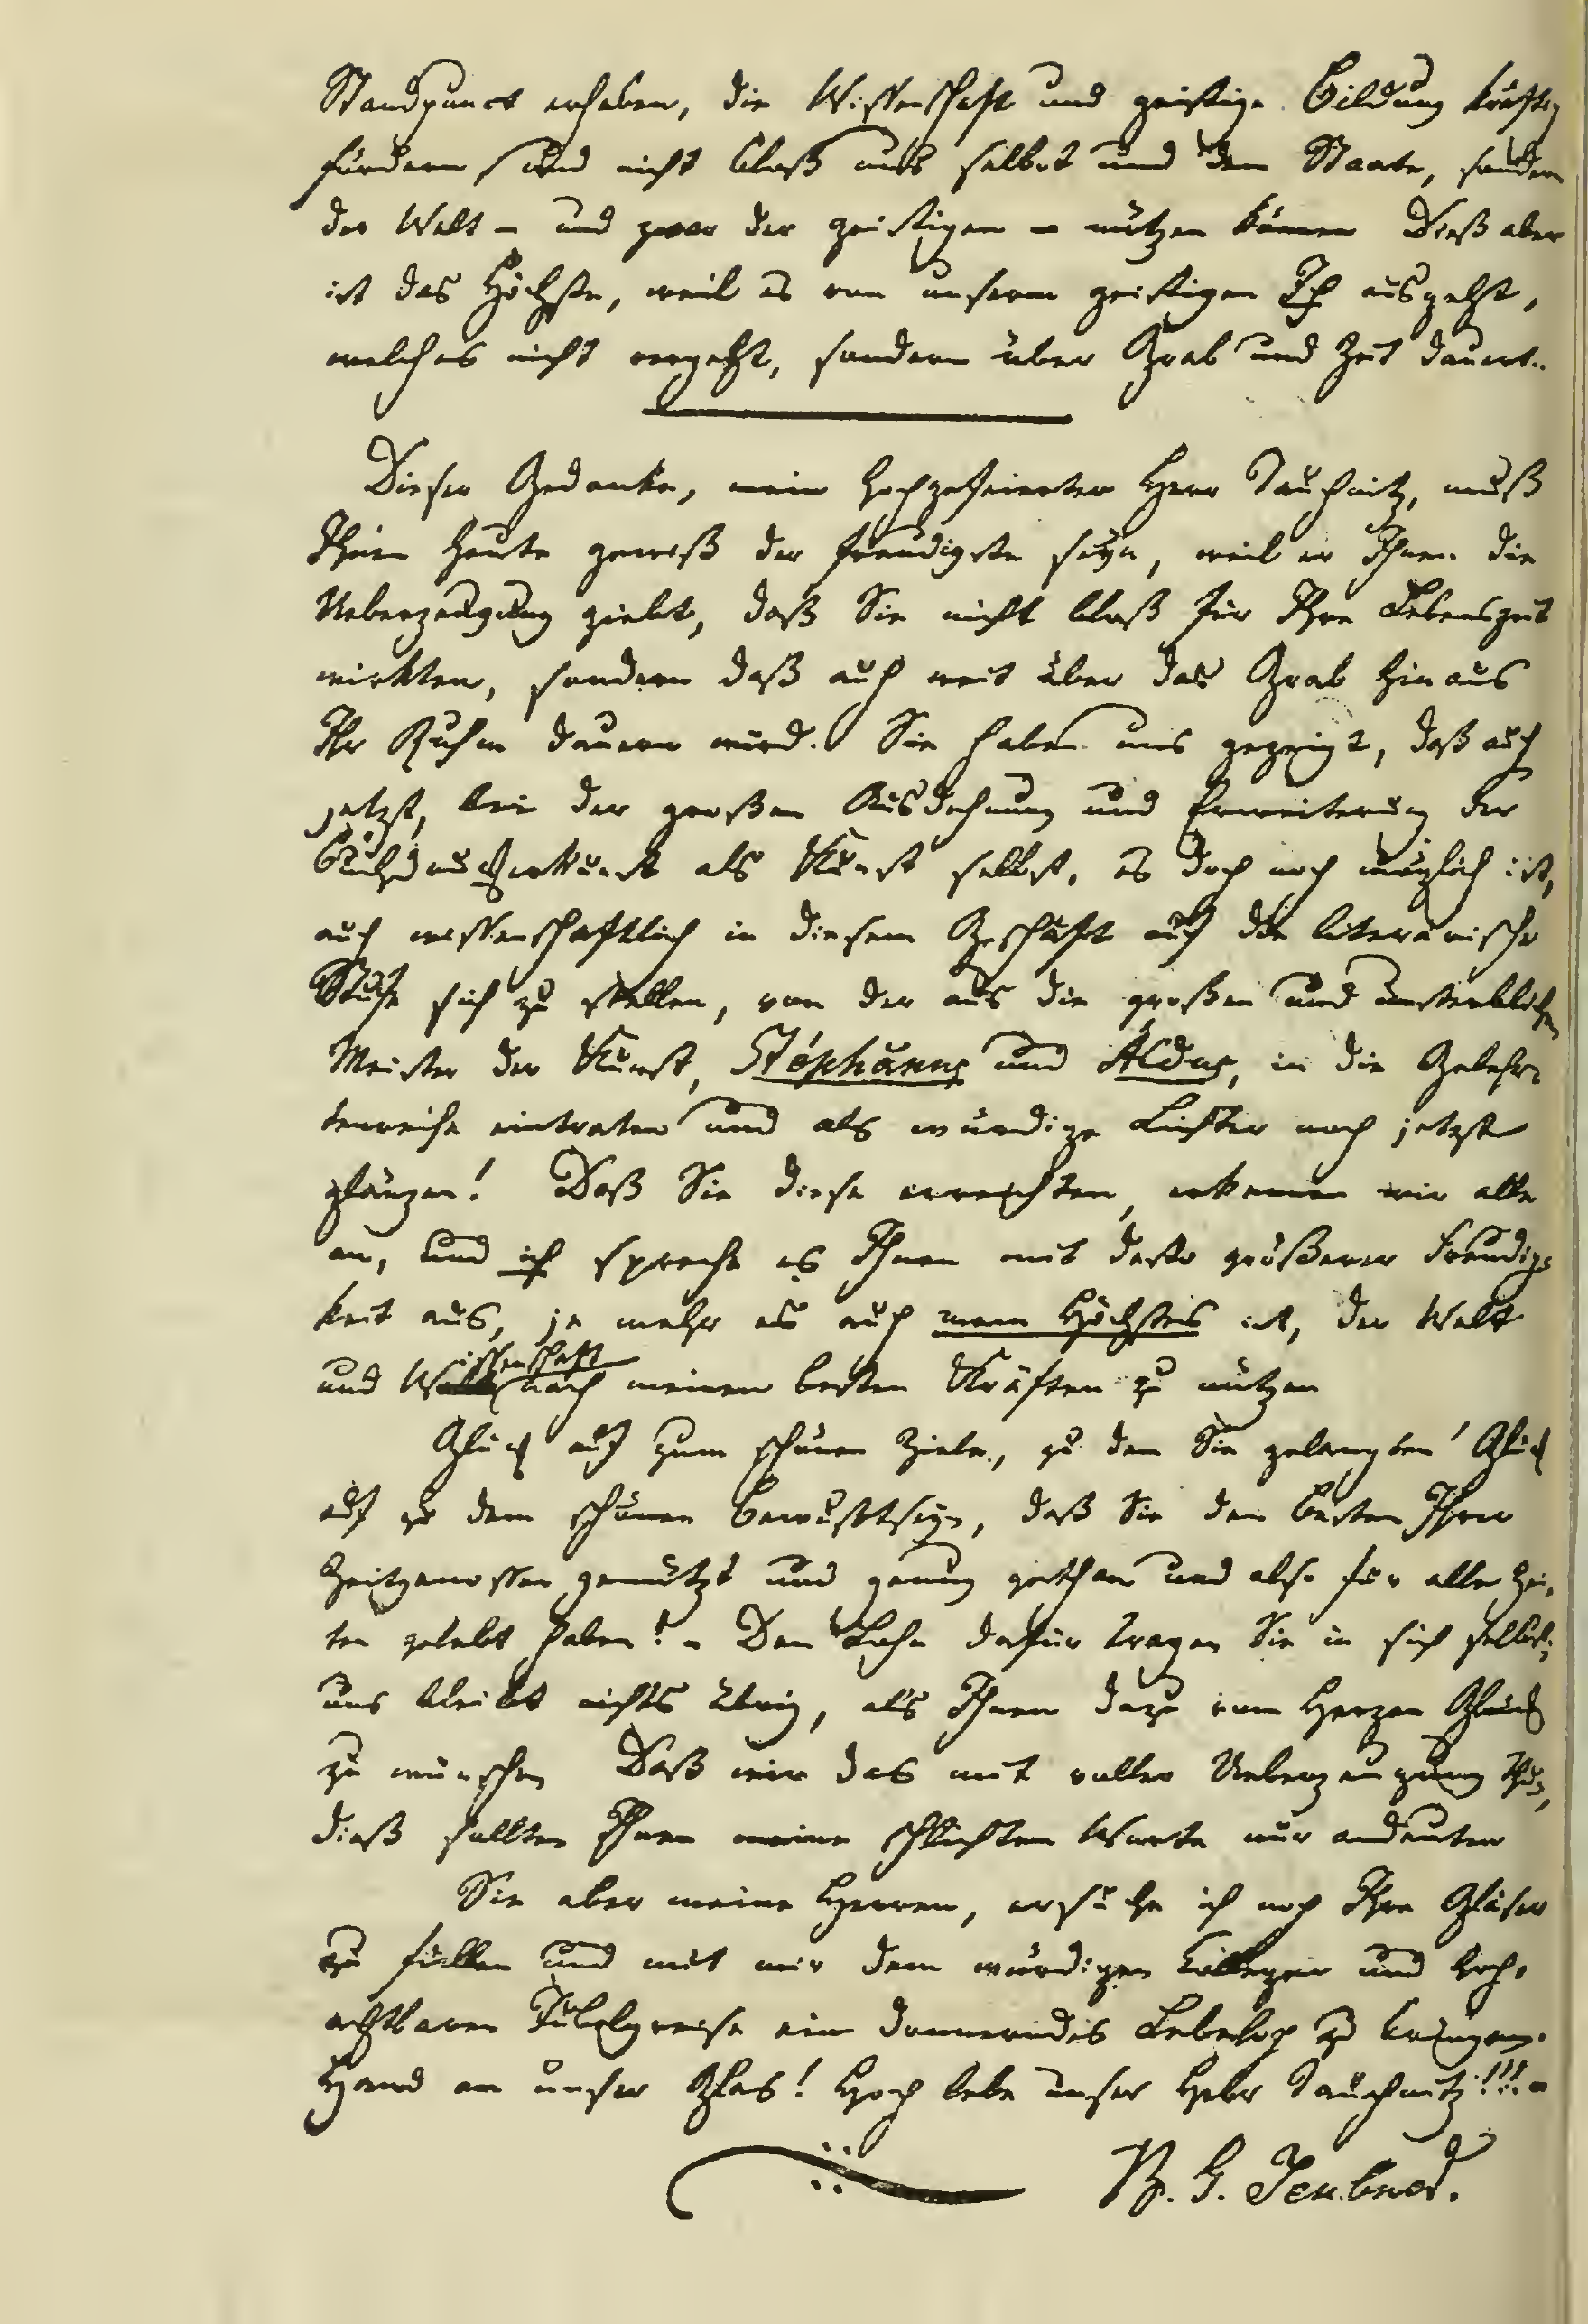 Standpunct erheben, die Wissenschaft und geistige Bildung kräftig
fördern und nicht bloß uns selbst und dem Staate, sondern
der Welt – und zwar der geistigen – nützen können Dieß aber
ist das Höchste, weil es von unserm geistigen Ich ausgeht,
welches nicht vergeht, sondern über Grab und Zeit dauert..
Dieser Gedanke, mein hochgefeierter Herr Tauchnitz, muß
Ihnen heute gewiß der freudigste seyn, weil er Ihnen die
Ueberzeugung giebt, daß Sie nicht bloß für Ihre Lebenszeit
wirkten, sondern daß auch weit über das Grab hinaus
Ihr Ruhm dauern wird. Sie haben uns gezeigt, daß auch
jetzt, bei der großen Ausdehnung und Erweiterung der
Buchdruckerkunst als Kunst selbst, es doch noch möglich ist,
auch wissenschaftlich in diesem Geschäft auf die literarische
Stufe sich zu stellen, von der aus die großen und unsterblichen
Meister der Kunst, Stéphanus und Aldus, in die Gelehr-
tenreihe eintraten und als würdige Lichter noch jetzt
glänzen! Daß Sie diese erreichten, erkennen wir alle
an, und ich spreche es Ihnen mit desto größerer Freudig-
keit aus, je mehr es auch mein Höchstes ist, der Welt
und Wissenschaft nach meinen besten Kräften zu nützen
Glück auf zum schönen Ziele, zu dem Sie gelangten! Glück
auf zu dem schönen Bewußtseyn, daß Sie den Besten Ihrer
Zeitgenossen genützt und genug gethan und also für alle Zei-
ten gelebt haben! – Den Lohn dafür tragen Sie in sich selbst;
uns bleibt nichts übrig, als Ihnen dazu vom Herzen Glück
zu wünschen Daß wir das mit voller Ueberzeugung thun,
dieß sollten Ihnen meine schlichten Worte nur andeuten
Sie aber meine Herren, ersuche ich noch Ihre Gläser
zu füllen und mit mir dem würdigen Collegen und hoch-
achtbaren Jubelgreise ein donnerndes Lebehoch zu bringen.
Hand an unser Glas! Hoch lebe unser Herr Tauchnitz!!! –
B. G. Teubner.